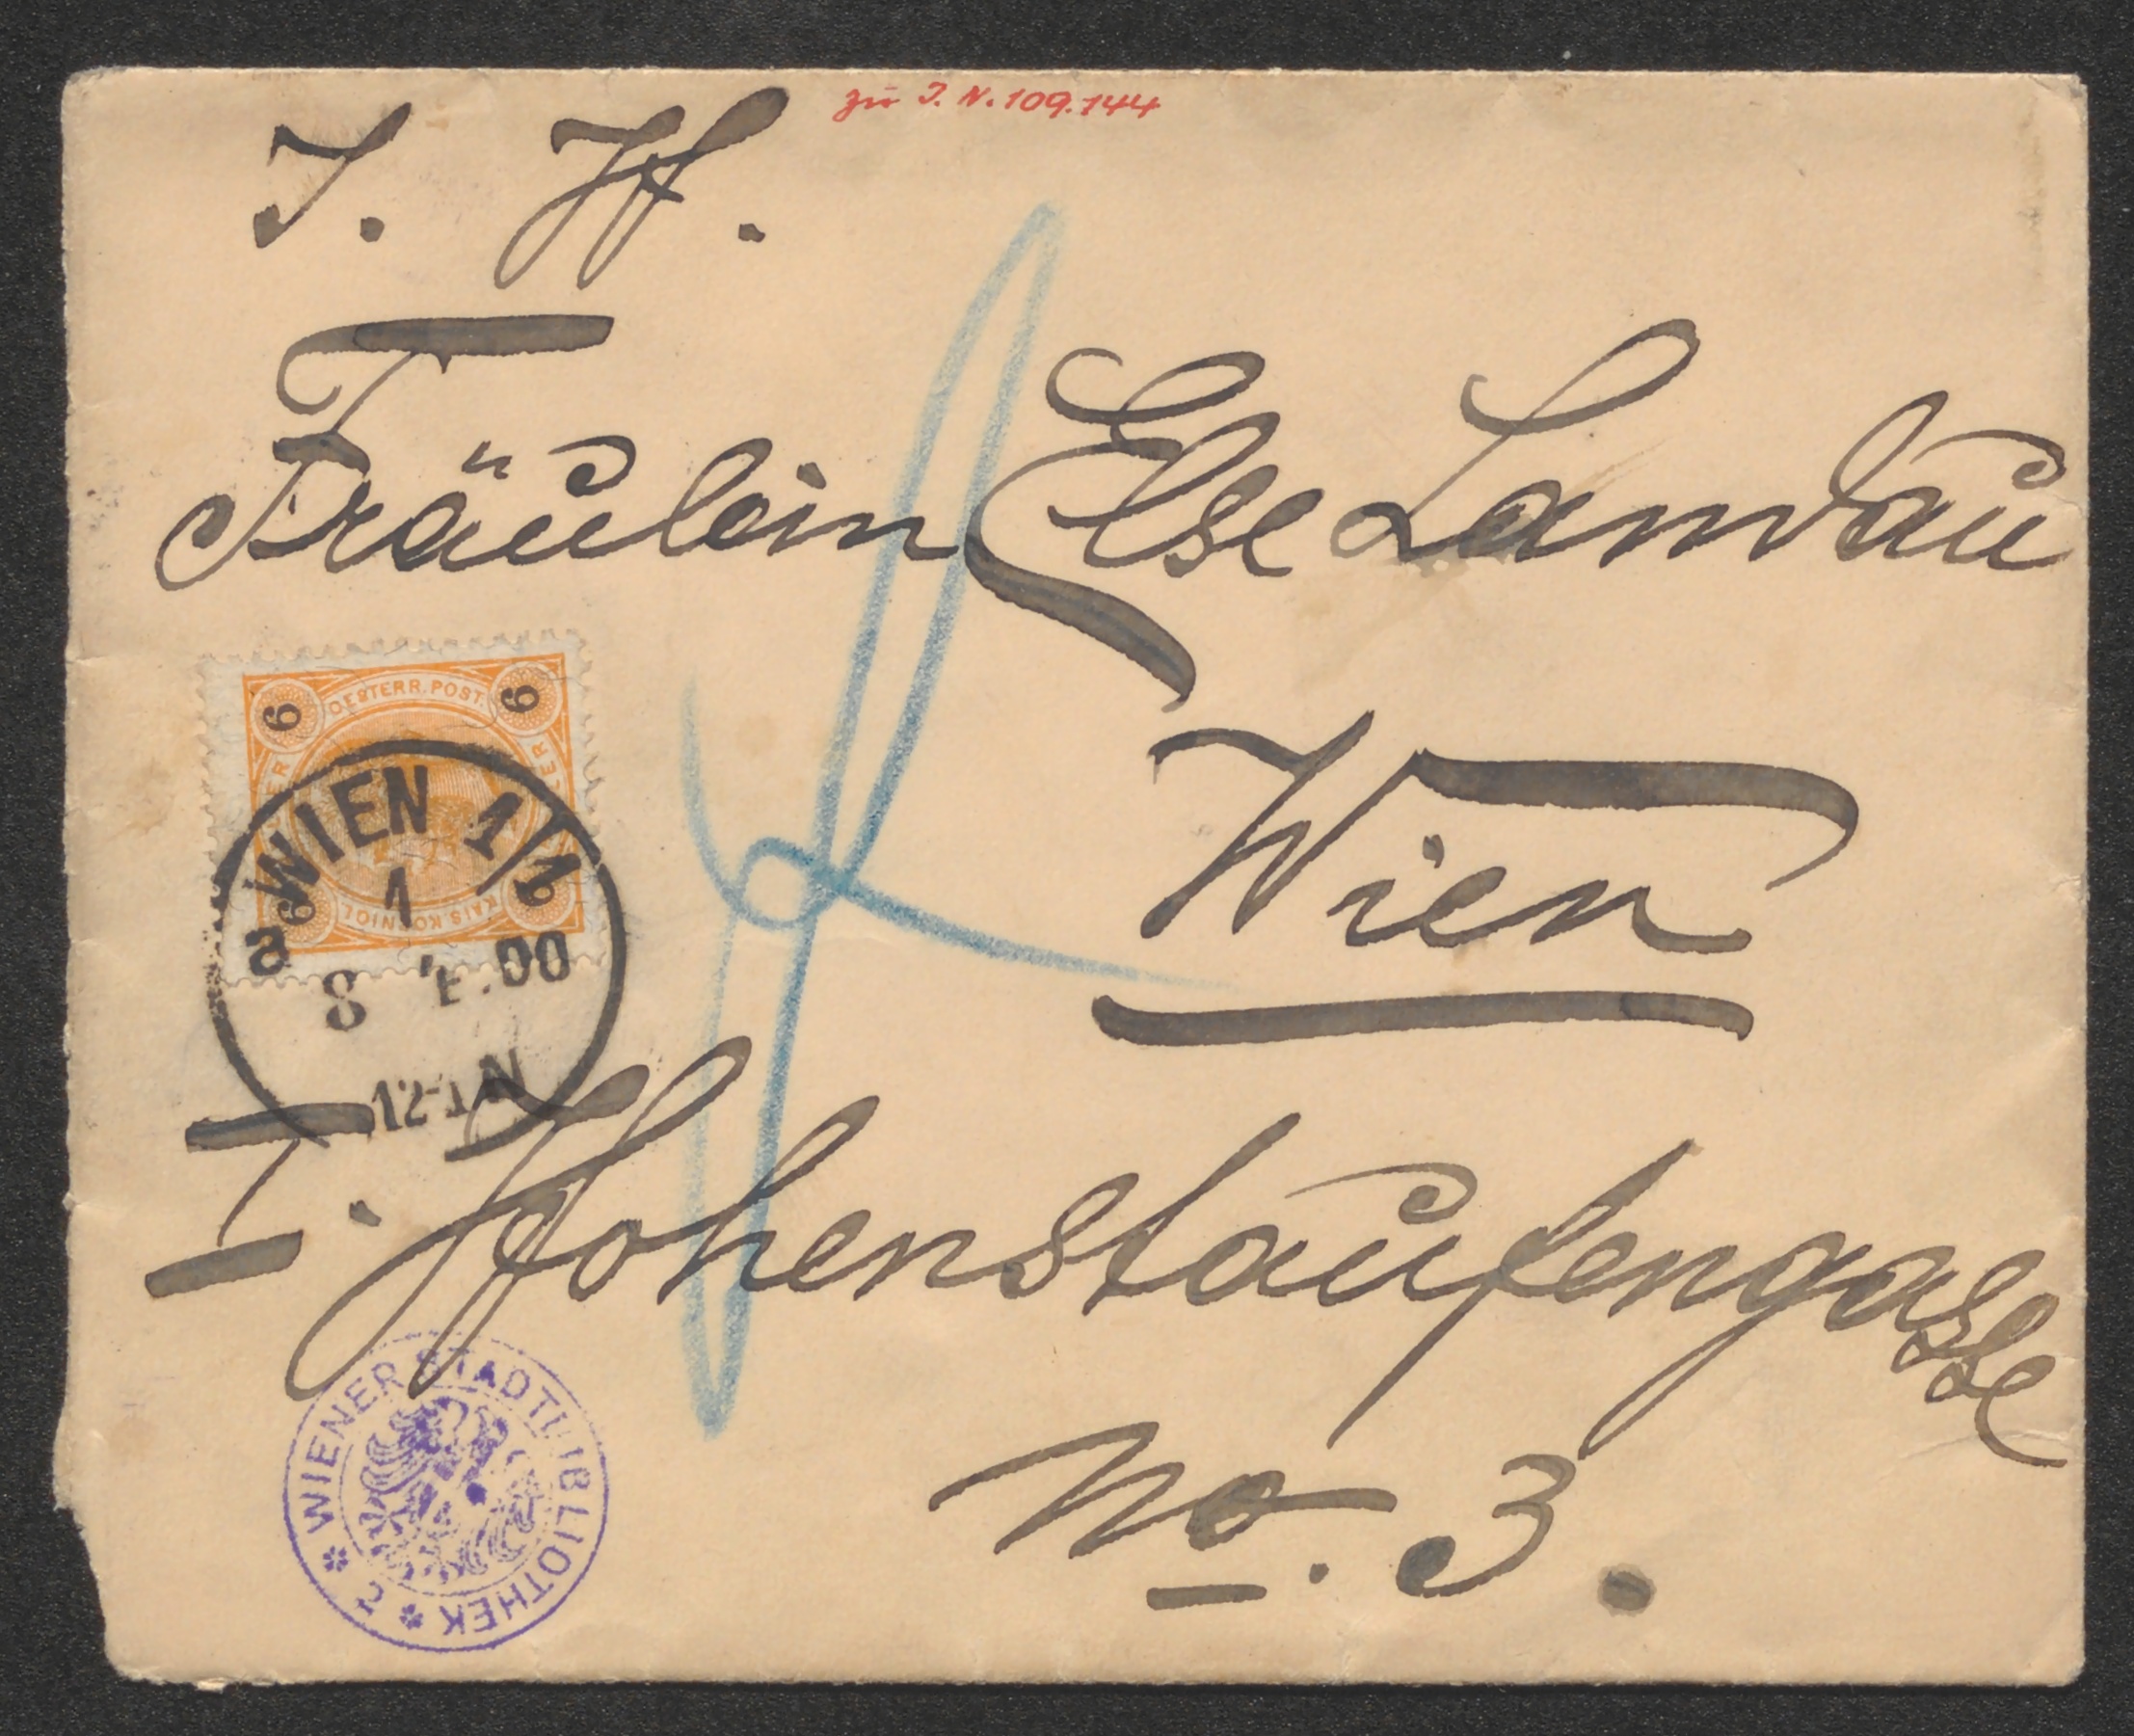 zu I. N. 109.144
I. H.
Fräulein Else Landau
OESTERR. POST.
6 6
WIEN 1/1
1
6
KAIS KOENIGL
8 00
12-1 N
Wien
I. Hohenstaufengasse
No. 3.
WIENER STADTBIBLIOTHEK